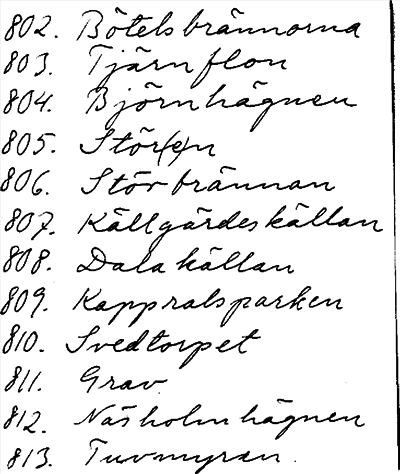 802. Bötelsbrännorna
803. Tjärnflon
804. Björnhägnen
805. Stör(e)n
806. Störbrännan
807. Källgärdeskällan
808. Dalakällan
809. Kappralsparken
810. Svedtorpet
811. Grav
812. Näsholmhägnen
813. Tuvmyran.